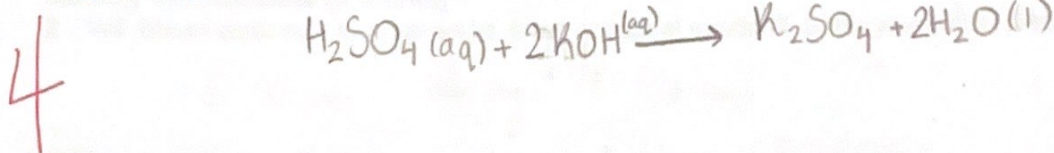 4
H₂SO₄ (aq) + 2KOH (aq) ⟶ K₂SO₄ + 2H₂O (l)